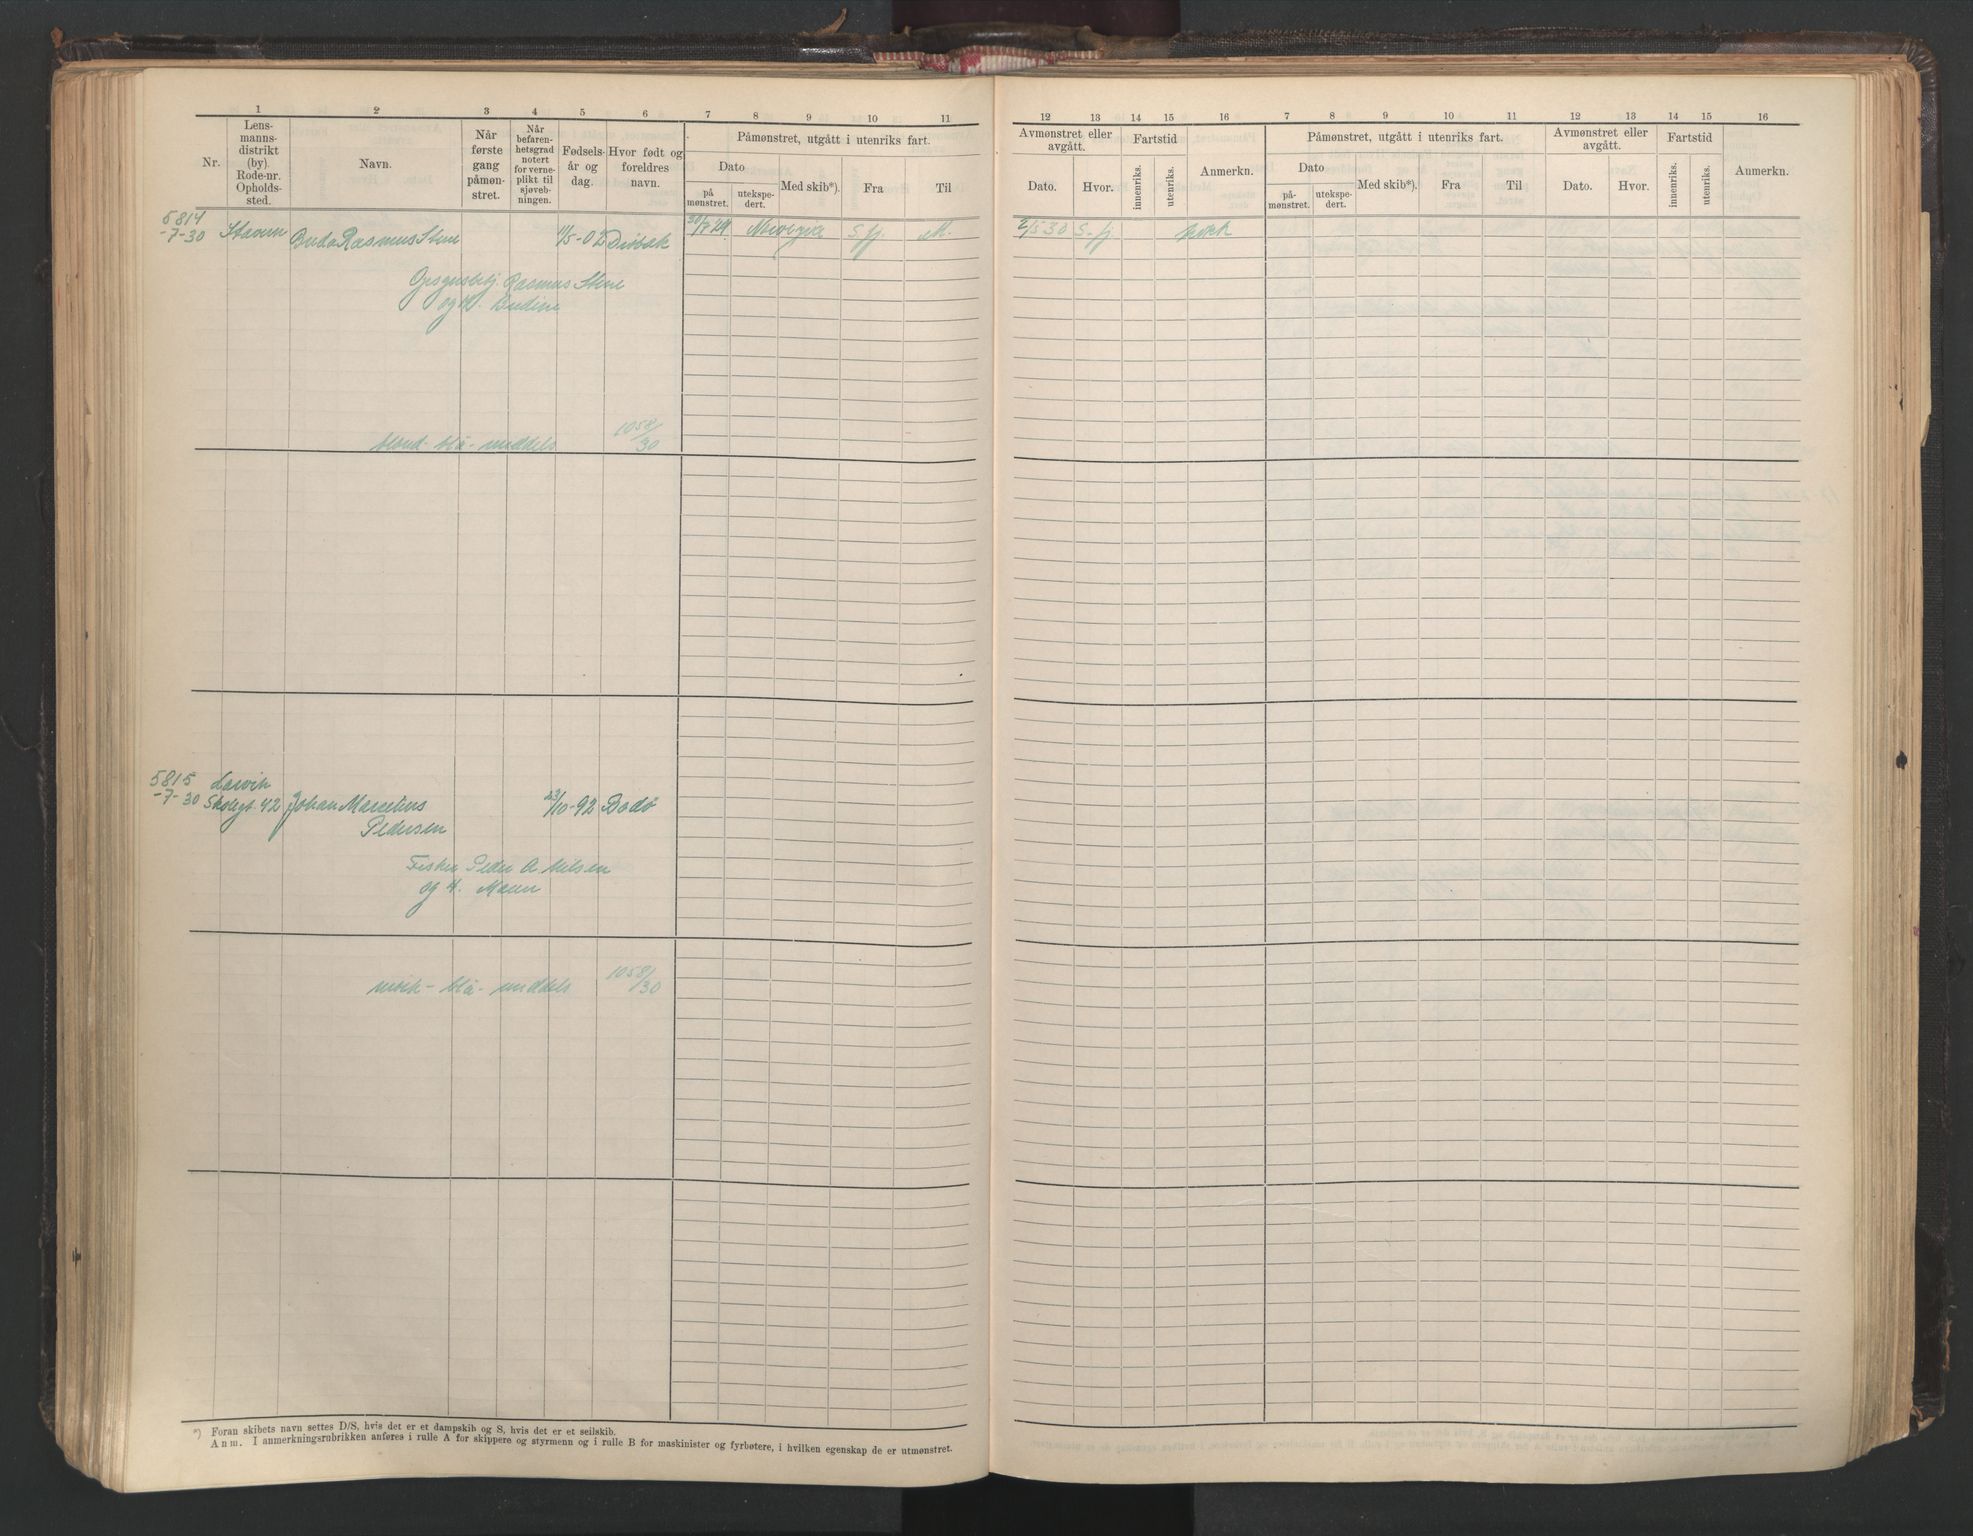 1 2 3 4 5 6 7 8 9 10 11
Nr.
Lens-
manns-
distrikt
(by).
Rode-nr.
Opholds-
sted.
Navn.
Når
første
gang
påmøn-
stret.
Når
befaren-
hetsgrad
notert
for verne-
plikt til
sjøveb-
ningen.
Fødsels-
år og
dag.
Hvor født og
foreldres
navn.
Påmønstret, utgått i utenriks fart.
Dato
på
mønstret.
utekspe-
dert.
Med skib*).
Fra
Til
12 13 14 15 16 7 8 9 10 11 12 13 14 15 16
Avmønstret eller
avgått.
Dato. Hvor.
Fartstid
innenriks.
utenriks.
Anmerkn.
Påmønstret, utgått i utenriks fart.
Dato
på
mønstret.
utekspe-
dert.
Med skib*).
Fra
Til
Avmønstret eller
avgått.
Dato. Hvor.
Fartstid
innenriks.
utenriks.
Anmerkn.
5814
-7-30 Stavern Rasmus Stene 11/5-02 30/7 29 S.fj. M. 2/5 30 S.fj
Rasmus Stene
og h.
blond - blå - middels 1058/30
5815 Larvik
-7-30 Skolegt. 42 Johan Marcelius 23/10-92 Bodö
Pedersen
Fisker Peder A. Nilsen
og h. Maren
mörk - blå - middels 1058/30
*) Foran skibets navn settes D/S, hvis det er et dampskib og S, hvis det er et seilskib.
Anm. I anmerkningsrubrikken anføres i rulle A for skippere og styrmenn og i rulle B for maskinister og fyrbøtere, i hvilken egenskap de er utmønstret.